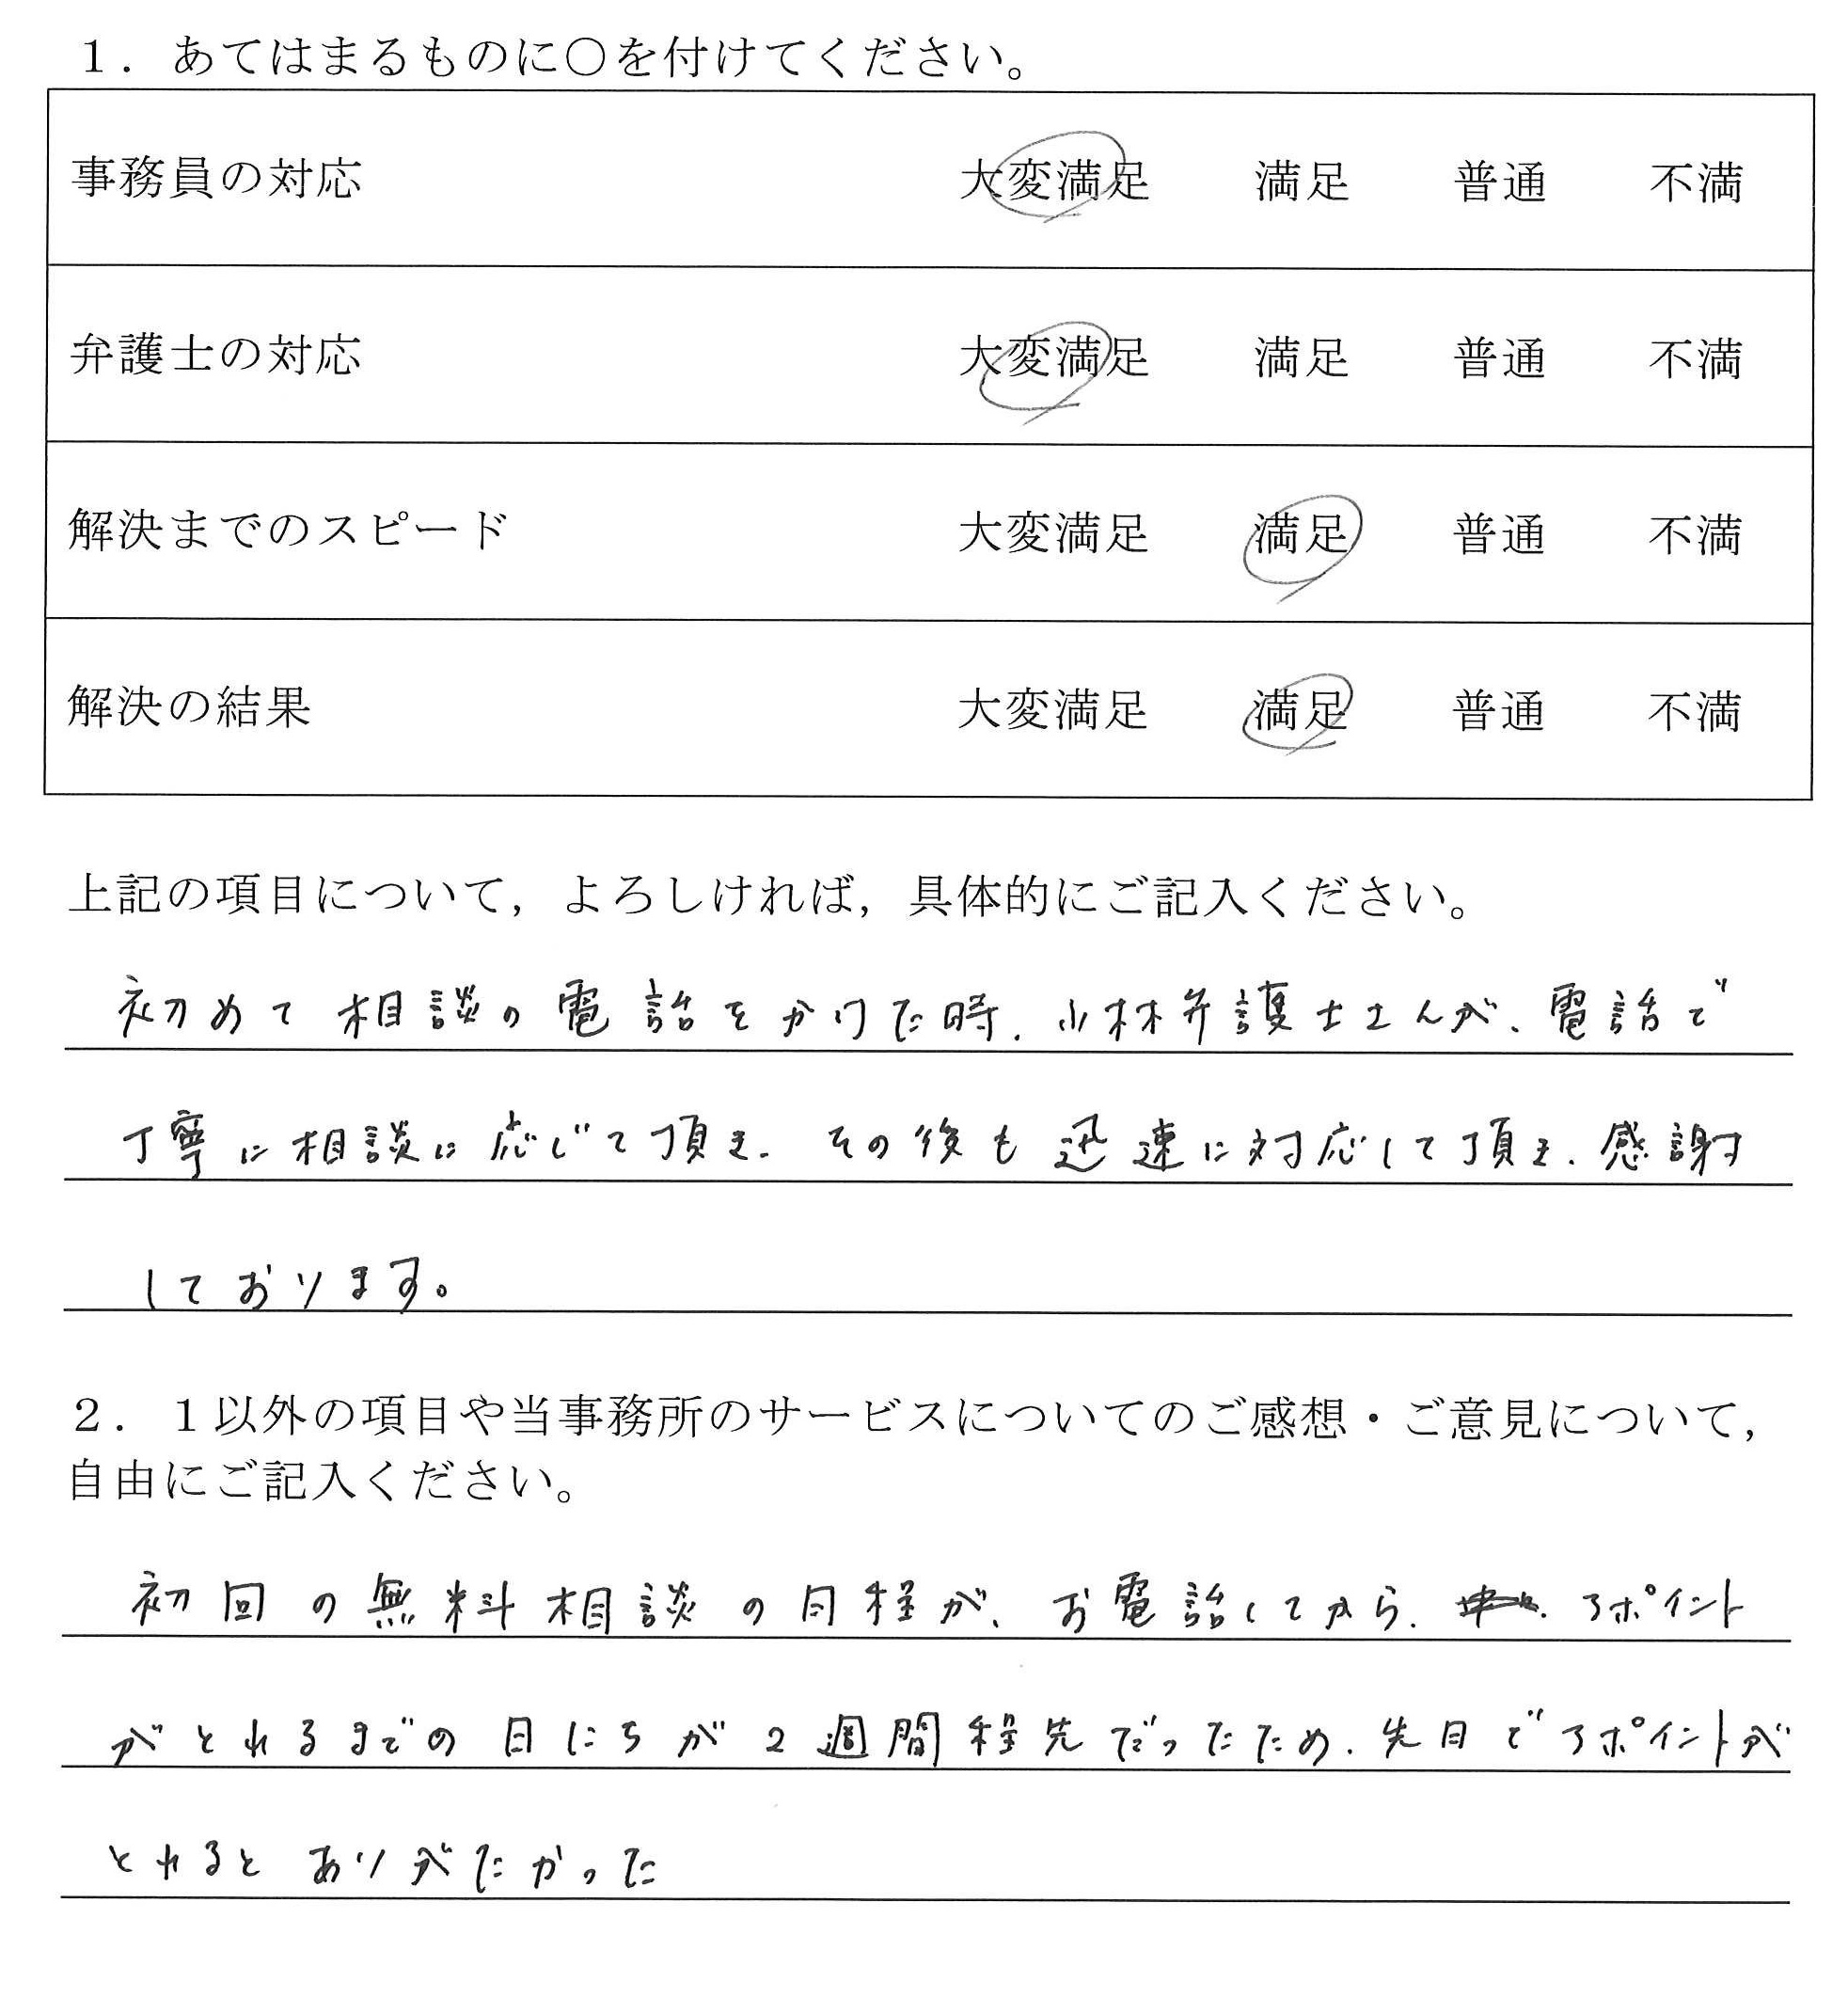 １．あてはまるものに〇を付けてください。
事務員の対応 大変満足 満足 普通 不満
弁護士の対応 大変満足 満足 普通 不満
解決までのスピード 大変満足 満足 普通 不満
解決の結果 大変満足 満足 普通 不満
上記の項目について，よろしければ，具体的にご記入ください。
初めて相談の電話をかけた時、小林弁護士さんが、電話で
丁寧に相談に応じて頂き、その後も迅速に対応して頂き、感謝
しております。
２．１以外の項目や当事務所のサービスについてのご感想・ご意見について，
自由にご記入ください。
初回の無料相談の日程が、お電話してから、アポイント
がとれるまでの日にちが2週間程先だったため、先日でアポイントが
とれるとありがたかった